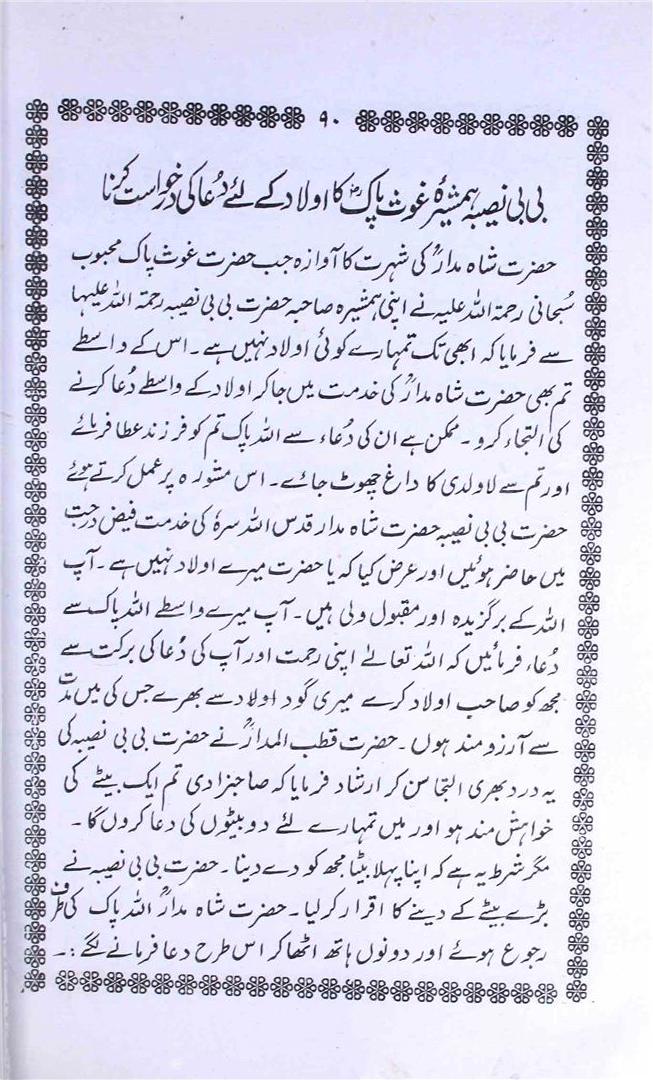 ۹۰
بی بی نصیبہ ہمشیرۂ غوث پاکؓ کا اولاد کے لئے دُعا کی درخواست کرنا
حضرت شاہ مدارؒ کی شہرت کا آوازہ جب حضرت غوث پاک محبوب
سُبحانی رحمۃ اللہ علیہ نے اپنی ہمشیرہ صاحبہ حضرت بی بی نصیبہ رحمۃ اللہ علیہا
سے فرمایا کہ ابھی تک تمہارے کوئی اولاد نہیں ہے ۔ اس کے واسطے
تم بھی حضرت شاہ مدارؒ کی خدمت میں جا کر اولاد کے واسطے دُعا کرنے
کی التجاء کرو ۔ ممکن ہے ان کی دُعاء سے اللہ پاک تم کو فرزند عطا فرمائے
اور تم سے لاولدی کا داغ چھوٹ جائے ۔ اس مشورہ پر عمل کرتے ہوئے
حضرت بی بی نصیبہ حضرت شاہ مدار قدس اللہ سرہٗ کی خدمت فیض درجت
میں حاضر ہوئیں اور عرض کیا کہ یا حضرت میرے اولاد نہیں ہے ۔ آپ
اللہ کے برگزیدہ اور مقبول ولی ہیں ۔ آپ میرے واسطے اللہ پاک سے
دُعاء فرمائیں کہ اللہ تعالےٰ اپنی رحمت اور آپ کی دُعا کی برکت سے
مجھ کو صاحب اولاد کرے میری گود اولاد سے بھرے جس کی میں مدّت
سے آرزو مند ہوں ۔ حضرت قطب المدارؒ نے حضرت بی بی نصیبہ کی
یہ درد بھری التجا سن کر ارشاد فرمایا کہ صاحبزادی تم ایک بیٹے کی
خواہش مند ہو اور میں تمہارے لئے دو بیٹوں کی دعا کروں گا ۔
مگر شرط یہ ہے کہ اپنا پہلا بیٹا مجھ کو دے دینا ۔ حضرت بی بی نصیبہ نے
بڑے بیٹے کے دینے کا اقرار کر لیا ۔ حضرت شاہ مدارؒ اللہ پاک کی طرف
رجوع ہوئے اور دونوں ہاتھ اٹھا کر اس طرح دعا فرمانے لگے :۔